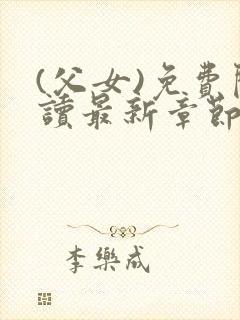 (父女)免費
讀最新章節
李樂成